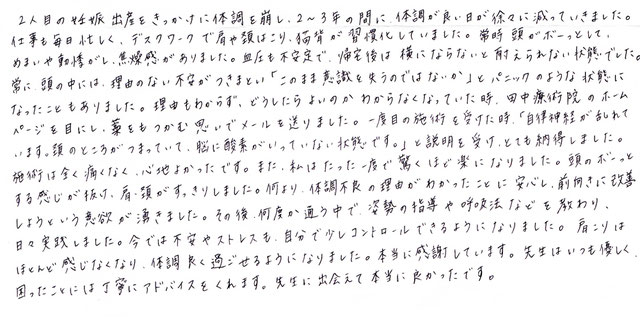 2人目の妊娠、出産をきっかけに体調を崩し、2～3年の間に、体調が良い日が徐々に減っていきました。
仕事も毎日忙しく、デスクワークで肩や頭はこり、猫背が習慣化していました。常時頭がボーッとして、
めまいや動悸がし、焦燥感がありました。血圧も不安定で、帰宅後は横にならないと耐えられない状態でした。
常に、頭の中には、理由のない不安がつきまとい「このまま意識を失うのではないか」とパニックのような状態に
なったこともありました。理由もわからず、どうしたらよいのかわからなくなっていた時、田中療術院のホーム
ページを目にし、藁をもつかむ思いでメールを送りました。一度目の施術を受けた時、「自律神経が乱れて
います。頭のところがつまっていて、脳に酸素がいっていない状態です。」と説明を受け、とても納得しました。
施術は全く痛くなく、心地よかったです。また、私はたった一度で驚くほど楽になりました。頭のボーッと
する感じが抜け、肩・頭がすっきりしました。何より、体調不良の理由がわかったことに安心し、前向きに改善
しようという意欲が湧きました。その後、何度か通う中で、姿勢の指導や呼吸法などを教わり、
日々実践しました。今では不安やストレスも、自分で少しコントロールできるようになりました。肩こりは
ほとんど感じなくなり、体調良く過ごせるようになりました。本当に感謝しています。先生はいつも優しく、
困ったことには丁寧にアドバイスをくれます。先生に出会えて本当に良かったです。